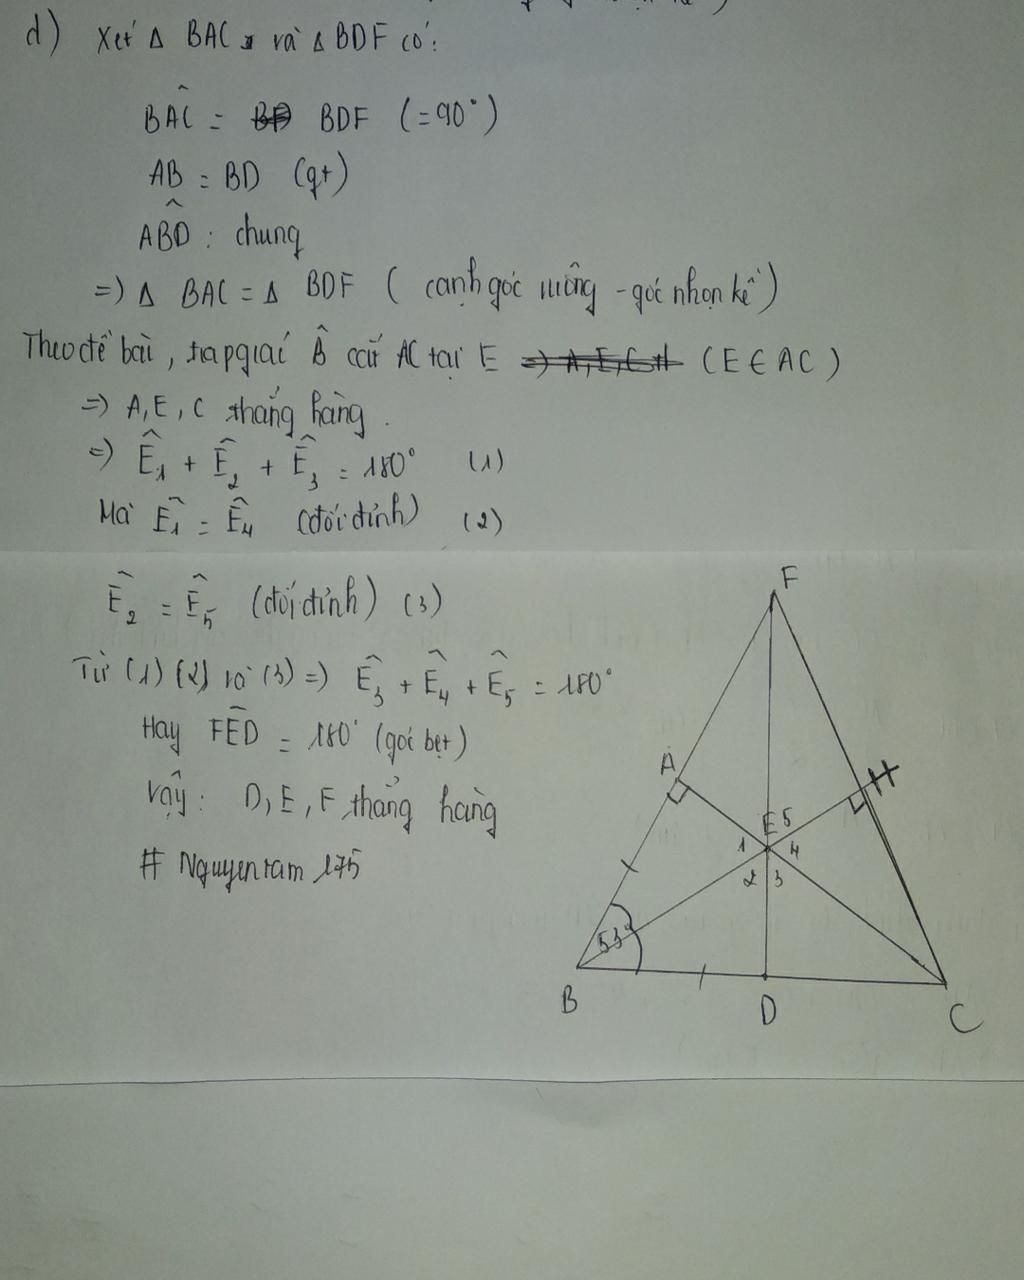 d) Xét Δ BAC và Δ BDF có:
BAC^ = BDF (=90°)
AB = BD (gt)
ABD^ : chung
=) Δ BAC = Δ BDF ( cạnh góc vuông - góc nhọn kề )
Theo đề bài, tia pgiác B^ cắt AC tại E (E ∈ AC)
=) A, E, C thẳng hàng.
=) Ê1 + Ê2 + Ê3 = 180° (1)
Mà Ê1 = Ê4 (đối đỉnh) (2)
Ê2 = Ê5 (đối đỉnh) (3)
Từ (1) (2) và (3) =) Ê3 + Ê4 + Ê5 = 180°
Hay FÊD = 180° (góc bẹt)
Vậy: D, E, F thẳng hàng
# Nguyenram 175
F
A
H
E 5
1 4
2 3
53°
B
D
C